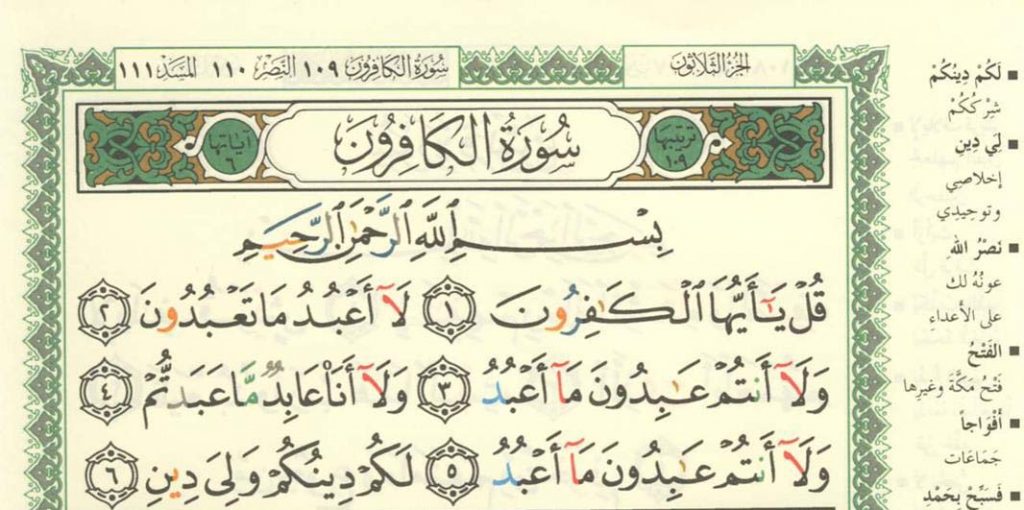 الجزء الثلاثون
سورة الكافرون ١٠٩ النصر ١١٠ المسد ١١١
ترتيبها ١٠٩
سُورَةُ الكَافِرُون
آياتها ٦
بِسْمِ ٱللَّهِ ٱلرَّحْمَٰنِ ٱلرَّحِيمِ
قُلْ يَٰٓأَيُّهَا ٱلْكَٰفِرُونَ ١ لَآ أَعْبُدُ مَا تَعْبُدُونَ ٢
وَلَآ أَنتُمْ عَٰبِدُونَ مَآ أَعْبُدُ ٣ وَلَآ أَنَا۠ عَابِدٌ مَّا عَبَدتُّمْ ٤
وَلَآ أَنتُمْ عَٰبِدُونَ مَآ أَعْبُدُ ٥ لَكُمْ دِينُكُمْ وَلِىَ دِينِ ٦
■ لَكُمْ دِينُكُمْ
شِرْكُكُمْ
■ لِيَ دِينِ
إخلاصِي
وتوحيدِي
■ نَصْرُ اللهِ
عونُهُ لك
على الأعداءِ
■ الفَتْحُ
فَتْحُ مَكَّةَ وغيرِها
■ أَفْوَاجاً
جَمَاعَات
■ فَسَبِّحْ بِحَمْدِ